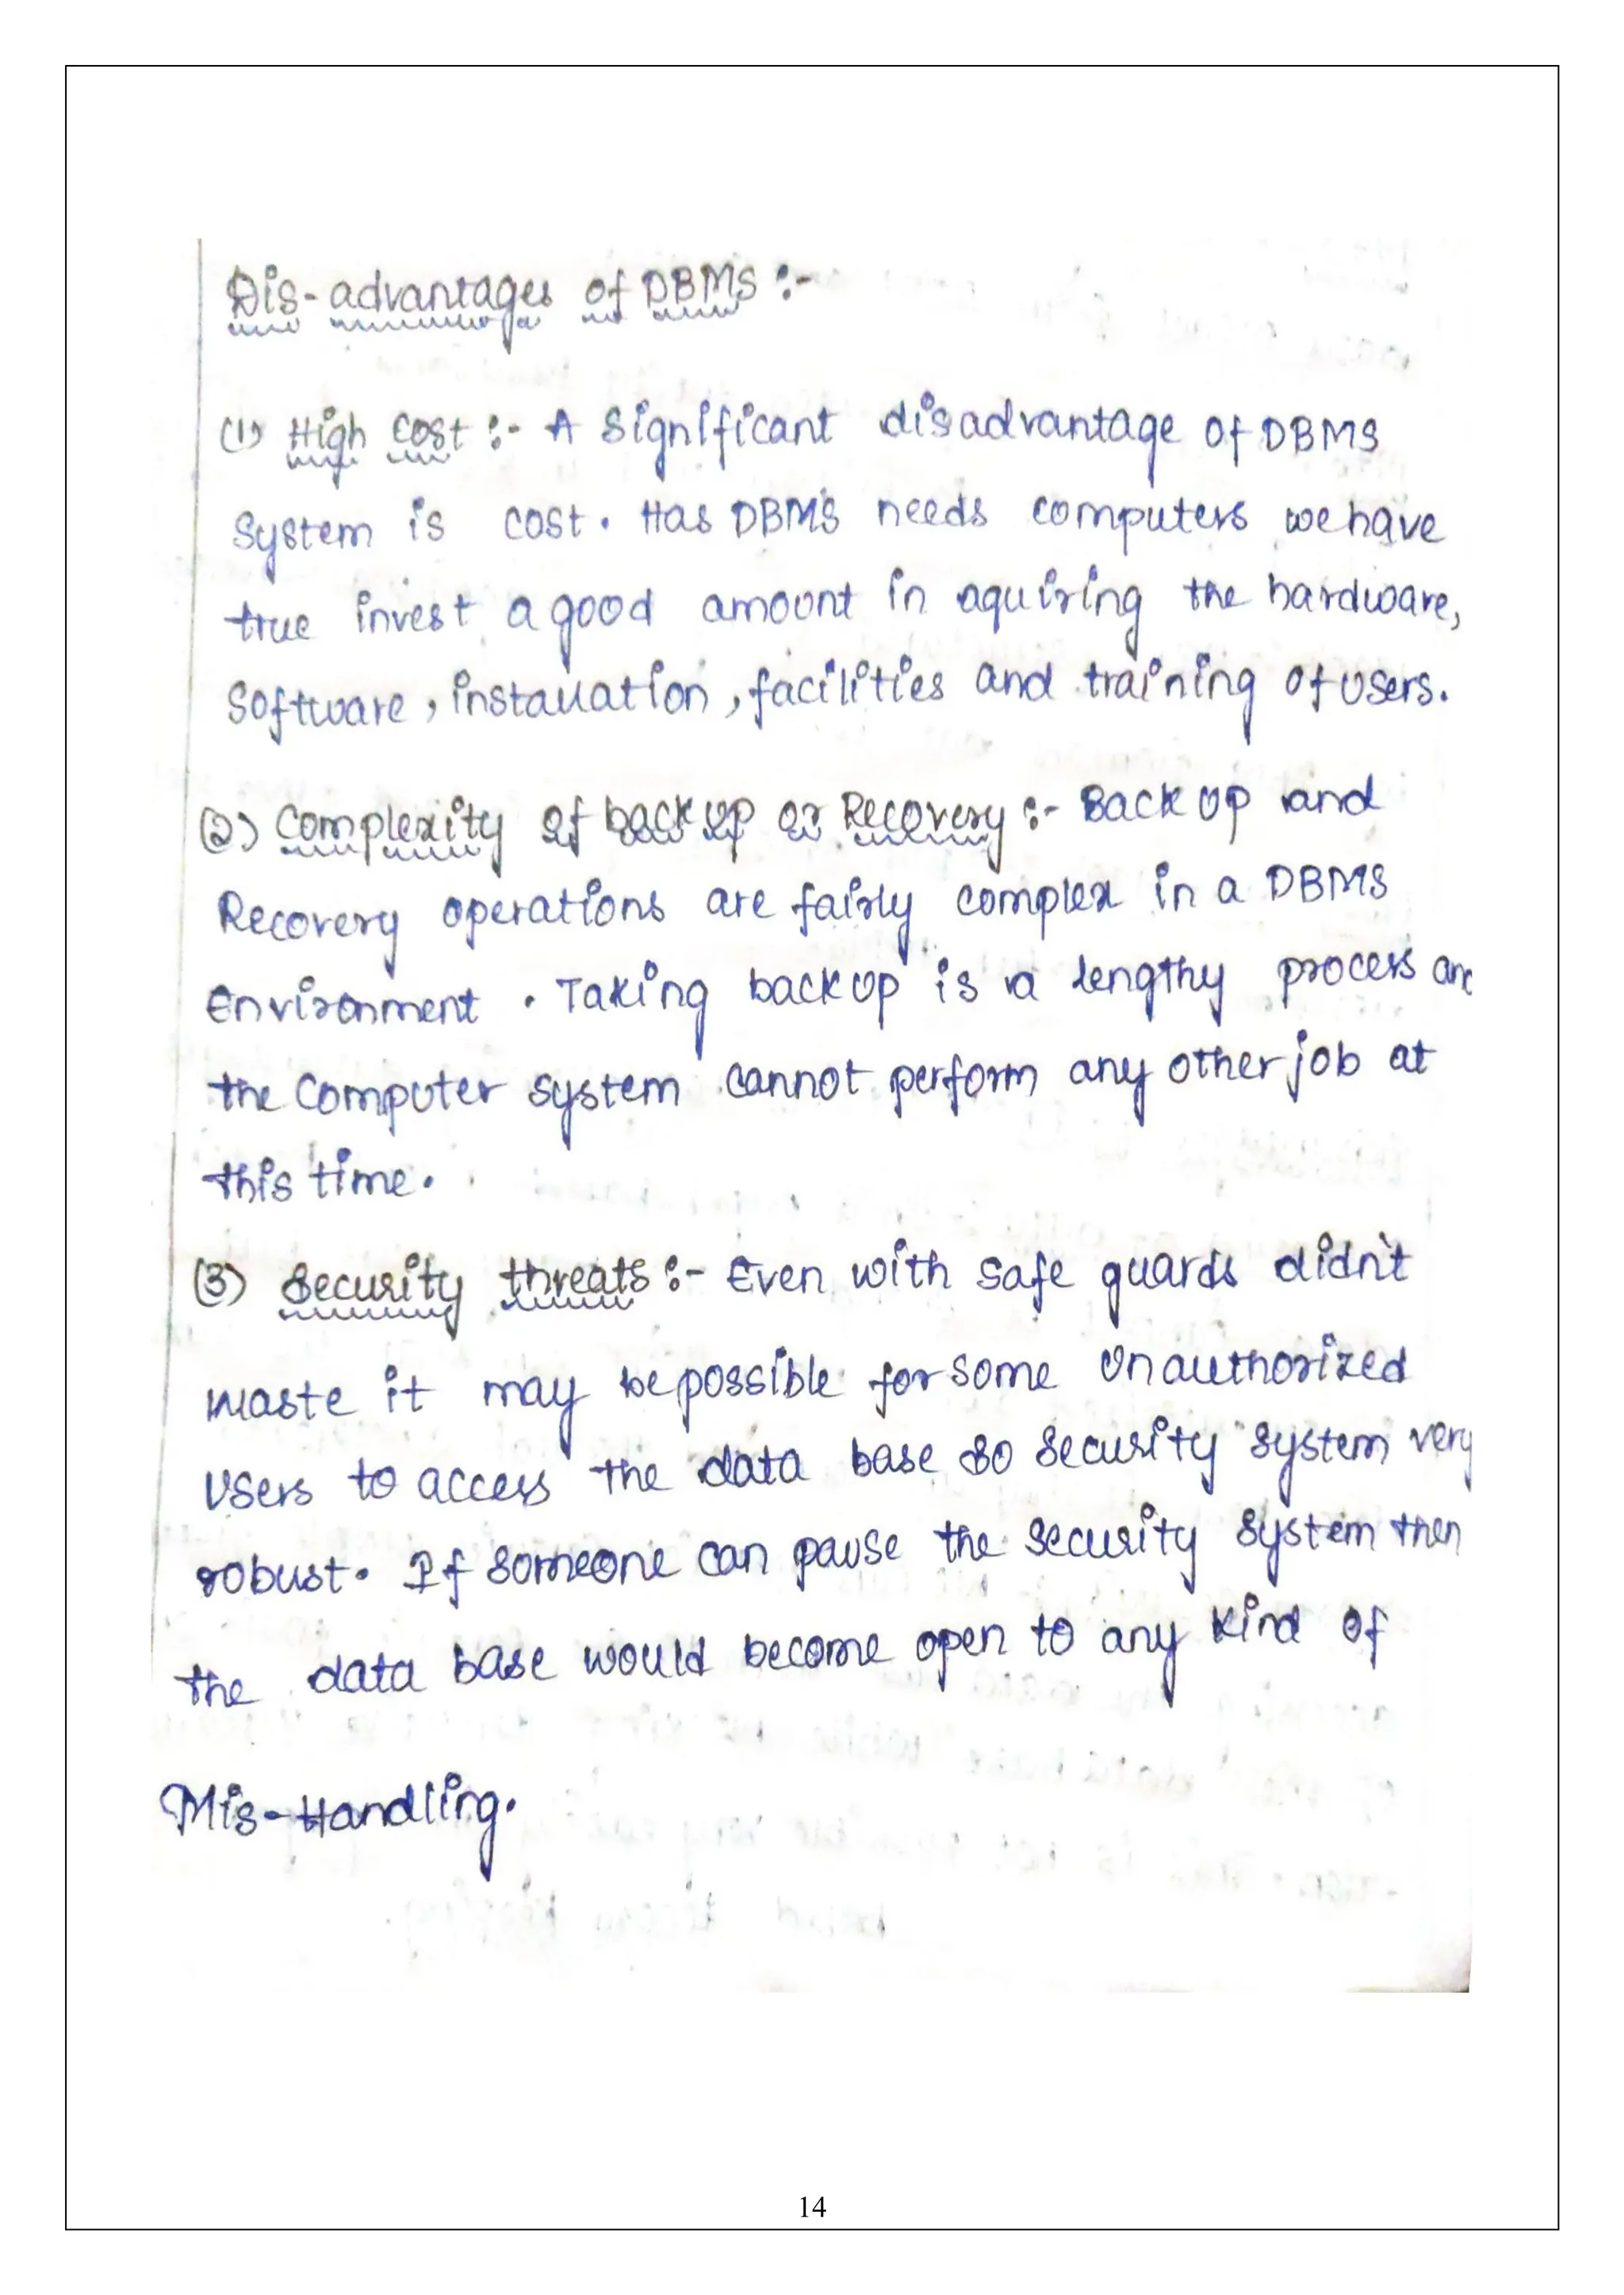 Dis-advantages of DBMS :-
(1) High cost :- A significant disadvantage of DBMS
system is cost. Has DBMS needs computers we have
true invest a good amount in aquiring the hardware,
software, installation, facilities and training of users.
(2) Complexity of back up or Recovery :- Back up and
Recovery operations are fairly complex in a DBMS
Environment. Taking back up is a lengthy process an
the computer system cannot perform any other job at
this time.
(3) Security threats :- Even with safe guards didn't
waste it may be possible for some unauthorized
users to access the data base so security system very
robust. If someone can pause the security system then
the data base would become open to any kind of
Mis-Handling.
14